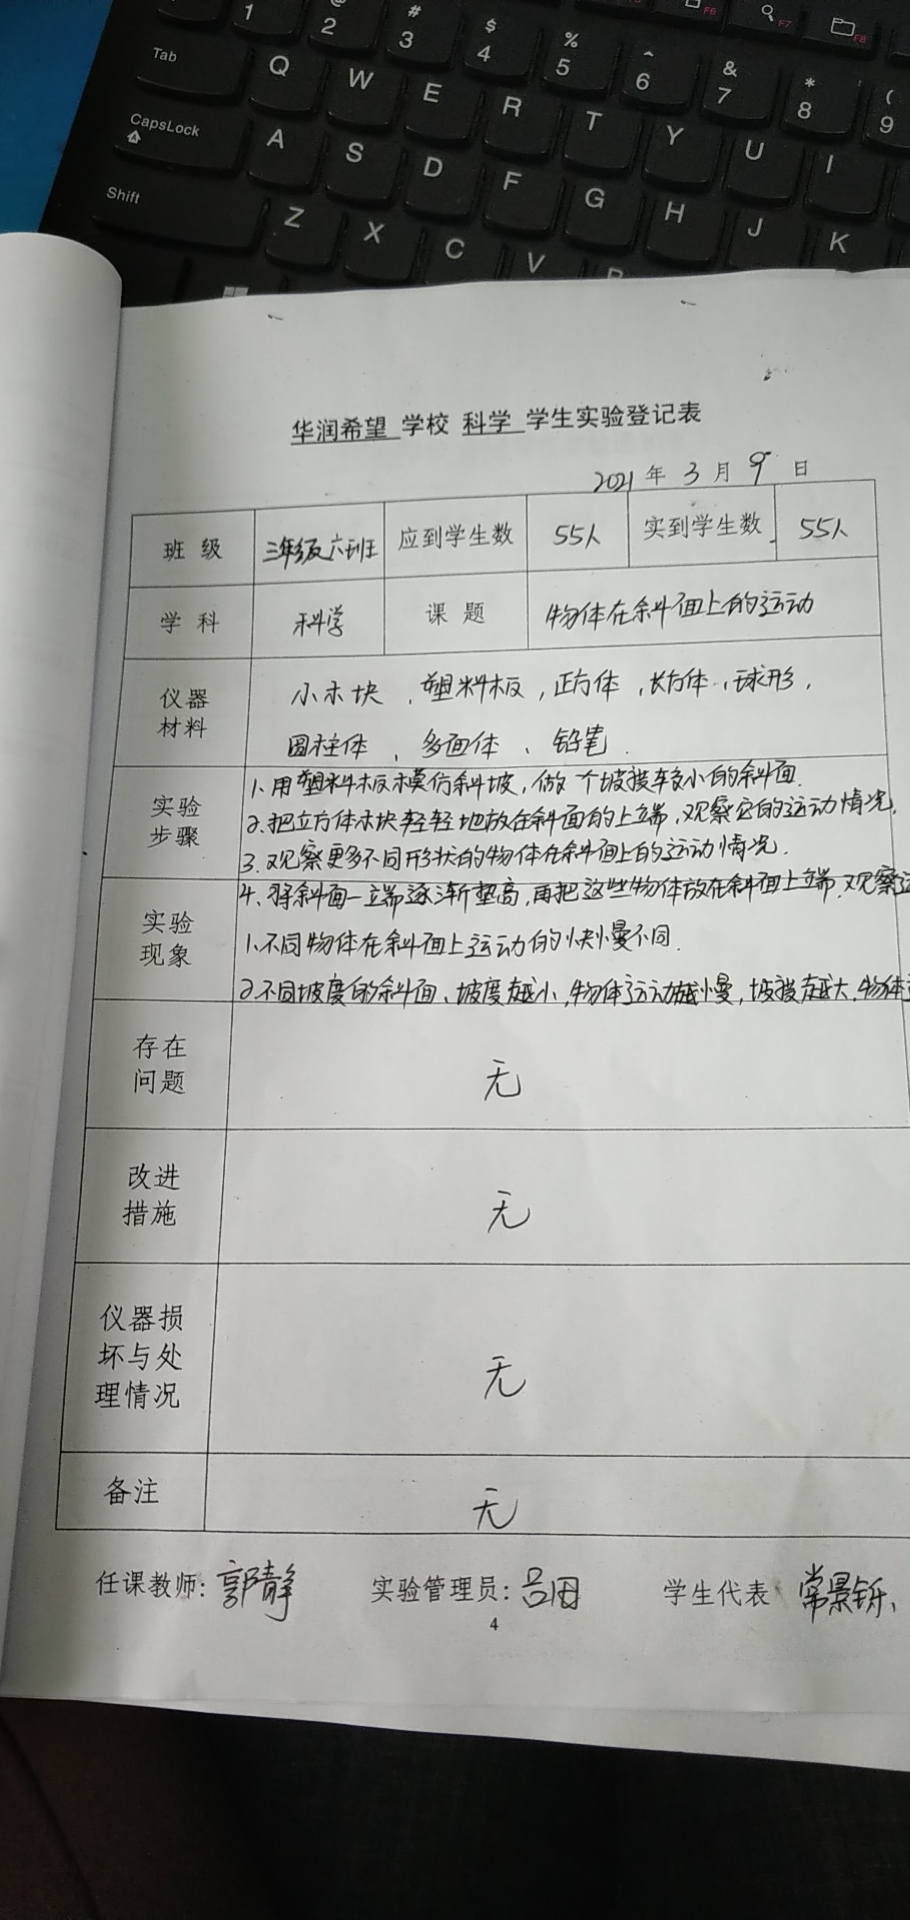 1 2 # 3 $ 4 % 5 ^ 6 & 7 * 8 ( 9
F6 F7 F8
Tab Q W E R T Y U I
CapsLock A S D F G H J K
Shift Z X C V
华润希望 学校 科学 学生实验登记表
2021 年 3 月 9 日
班级 三年级六班 应到学生数 55人 实到学生数 55人
学科 科学 课题 物体在斜面上的运动
仪器 小木块、塑料板,正方体,长方体、球形,
材料 圆柱体、多面体、铅笔.
实验 1、用塑料板模仿斜坡,做个坡度较小的斜面.
步骤 2、把立方体木块轻轻地放在斜面的上端,观察它的运动情况,
3、观察更多不同形状的物体在斜面上的运动情况.
4、将斜面一端逐渐垫高,再把这些物体放在斜面上端,观察
实验 1、不同物体在斜面上运动的快慢不同.
现象 2、不同坡度的斜面、坡度越小,物体运动越慢,坡度越大,物体
存在
问题 无
改进
措施 无
仪器损
坏与处 无
理情况
备注 无
任课教师: 郭静 实验管理员: 学生代表 常景铄
4